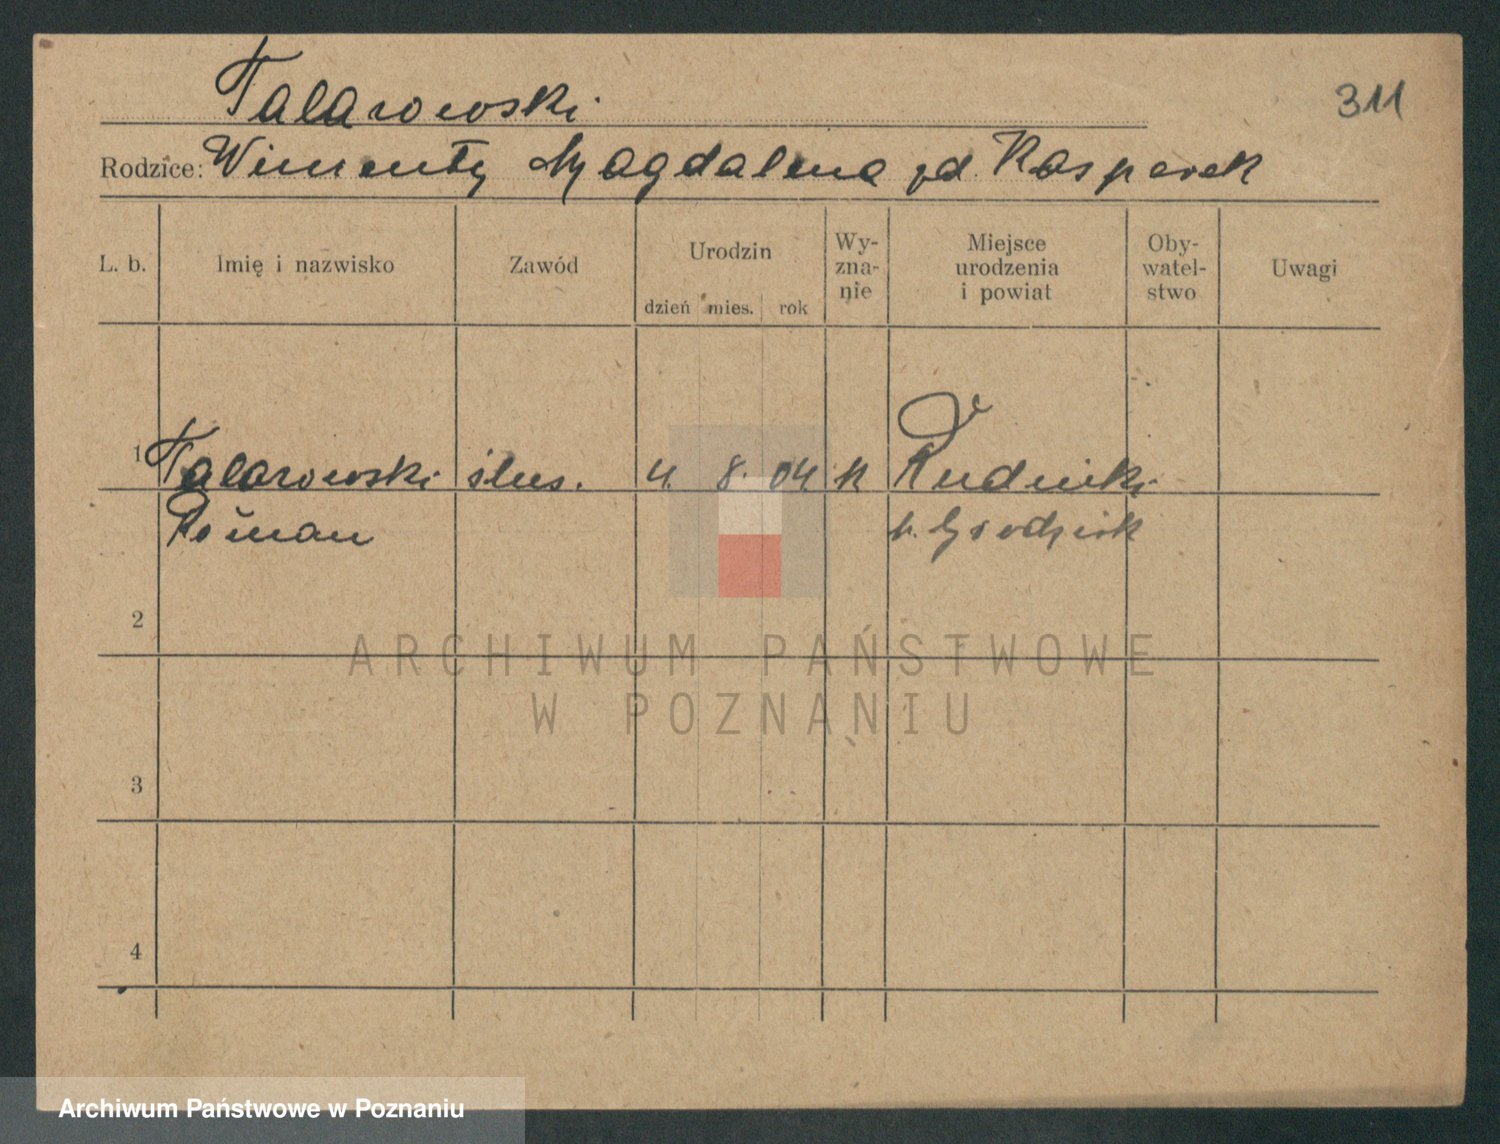 Talarowski
311
Rodzice: Wincenty Magdalena zd. Kasperek
L. b.
Imię i nazwisko
Zawód
Urodzin
dzień mies. rok
Wy-
zna-
nie
Miejsce
urodzenia
i powiat
Oby-
watel-
stwo
Uwagi
1 Talarowski ślus. 4. 8. 04 k Rudniki
Roman p. Grodzisk
2
3
4
ARCHIWUM PAŃSTWOWE
W POZNANIU
Archiwum Państwowe w Poznaniu